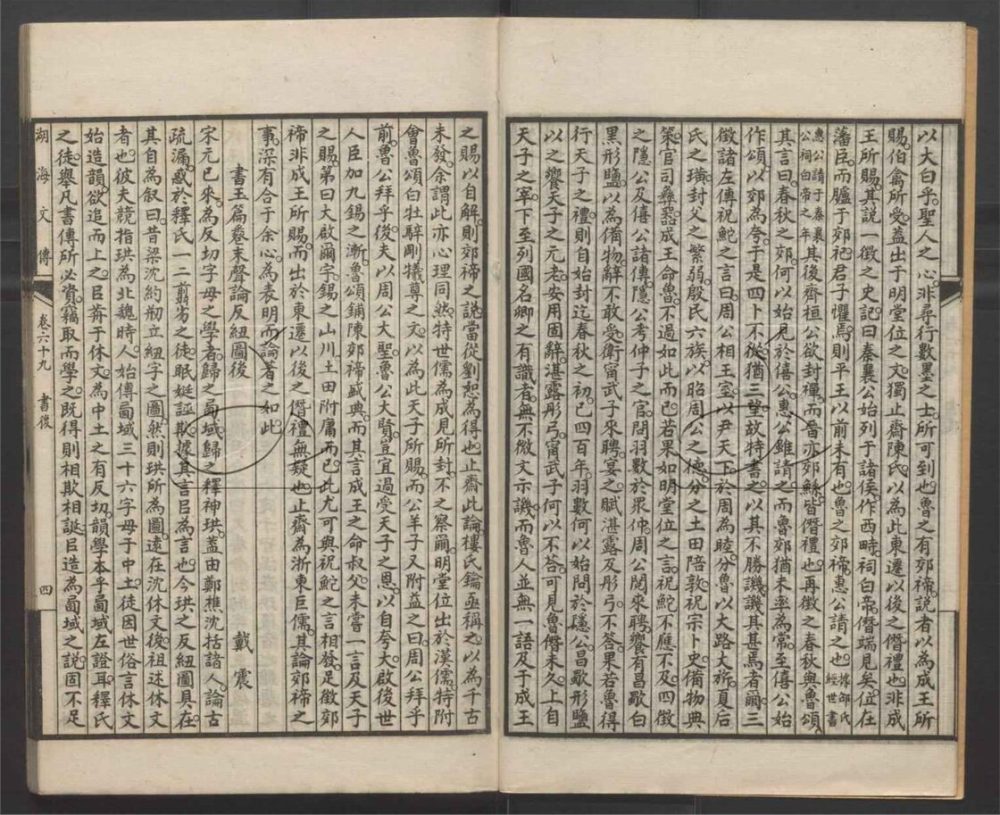 以大白乎聖人之心非尋行數墨之士所可到也魯之有郊禘說者以為成王所
賜伯禽所受蓋出于明堂位之文獨止齋陳氏以為此東遷以後之僭禮也非成
王所賜其說一徵之史記曰秦襄公始列于諸侯作西畤祠白帝僭端見矣位在
藩臣而臚于郊祀君子懼焉則平王以前未有也魯之郊禘惠公請之也據邵氏經世書
惠公請于秦襄公祠白帝之年其後齊桓公欲封禪而晉亦郊鯀皆僭禮也再徵之春秋與魯頌
其言曰春秋之郊何以始見於僖公惠公雖請之而魯郊猶未率為常至僖公始
作頌以郊為夸于是四卜不從猶三望故特書之以其不勝譏譏其甚焉者爾三
徵諸左傳祝鮀之言曰周公相王室以尹天下於周為睦分魯以大路大旂夏后
氏之璜封父之繁弱殷氏六族以昭周公之德分之土田陪敦祝宗卜史備物典
策官司彝器成王命魯不過如此而已若果如明堂位之言祝鮀不應不及四徵
之隱公及僖公諸傳隱公考仲子之宮問羽數於眾仲周公閱來聘饗有昌歜白
黑形鹽以為備物辭不敢受衛甯武子來聘宴之賦湛露及彤弓不答果若魯得
行天子之禮則自始封迄春秋之初已四百年羽數何以始問於隱公昌歜形鹽
以之饗天子之元老安用固辭湛露彤弓甯武子何以不答可見魯僭未久上自
天子之宰下至列國名卿之有識者無不微文示譏而魯人並無一語及于成王
之賜以自解則郊禘之說當從劉恕為得也止齋此論樓氏鑰亟稱之以為千古
未發余謂此亦心理同然特世儒為成見所封不之察爾明堂位出於漢儒特附
會魯頌白牡騂剛犧尊之文以為此天子所賜而公羊子又附益之曰周公拜乎
前魯公拜乎後夫以周公大聖魯公大賢豈宜過受天子之恩以自夸大啟後世
人臣加九錫之漸魯頌鋪陳郊禘盛典而其言成王之命叔父未嘗一言及天子
之賜第曰大啟爾宇錫之山川土田附庸而已此尤可與祝鮀之言相發足徵郊
禘非成王所賜而出於東遷以後之僭禮無疑也止齋為浙東巨儒其論郊禘之
事深有合于余心為表明而論著之如此
書玉篇卷末聲論反紐圖後
戴震
宋元已來為反切字母之學者歸之西域歸之釋神珙蓋由鄭樵沈括諸人論古
疏漏惑於釋氏一二翦劣之徒眠娗誣欺據其言㠯為言也今珙之反紐圖具在
其自為敘曰昔梁沈約刱立紐字之圖然則珙所為圖遠在沈休文後祖述休文
者也彼夫競指珙為北魏時人始傳西域三十六字母于中土徒因世俗言休文
始造韻欲追而上之㠯莭于休文為中土之有反切韻學本乎西域左證耳釋氏
之徒舉凡書傳所必資竊取而學之既得則相欺相誕㠯造為西域之說固不足
湖海文傳
卷六十九 書後
四